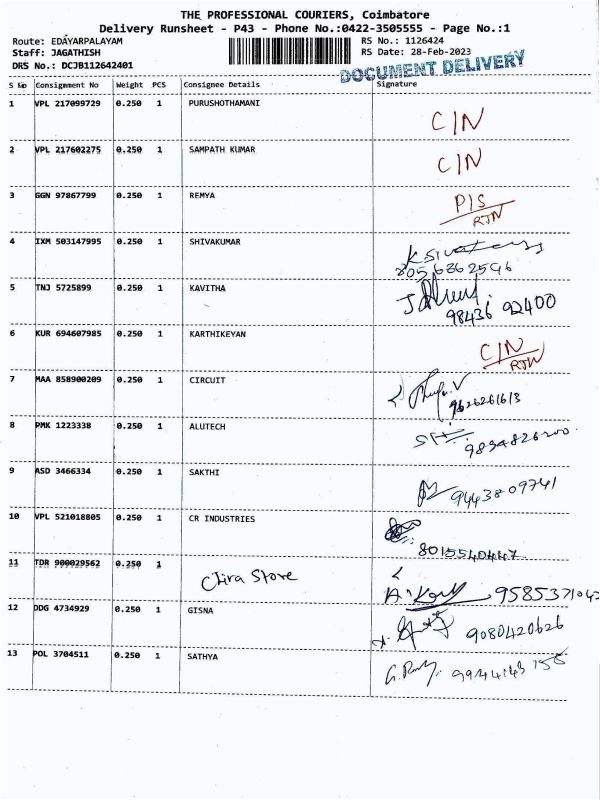 THE PROFESSIONAL COURIERS, Coimbatore
Delivery Runsheet - P43 - Phone No.:0422-3505555 - Page No.:1
Route: EDAYARPALAYAM RS No.: 1126424
Staff: JAGATHISH RS Date: 28-Feb-2023
DRS No.: DCJB112642401
DOCUMENT DELIVERY
S No Consignment No Weight PCS Consignee Details Signature
1 VPL 217099729 0.250 1 PURUSHOTHAMANI
C/N
2 VPL 217602275 0.250 1 SAMPATH KUMAR
C/N
3 GGN 97867799 0.250 1 REMYA
P/S
RTN
4 IXM 503147995 0.250 1 SHIVAKUMAR
5 TNJ 5725899 0.250 1 KAVITHA
98436 92400
6 KUR 694607985 0.250 1 KARTHIKEYAN
C/N
RTN
7 MAA 858900209 0.250 1 CIRCUIT
9626261613
8 PMK 1223338 0.250 1 ALUTECH
9894826200
9 ASD 3466334 0.250 1 SAKTHI
9443809741
10 VPL 521018805 0.250 1 CR INDUSTRIES
8015540447
11 TDR 900029562 0.250 1
Store
12 DDG 4734929 0.250 1 GISNA
9080420626
13 POL 3704511 0.250 1 SATHYA